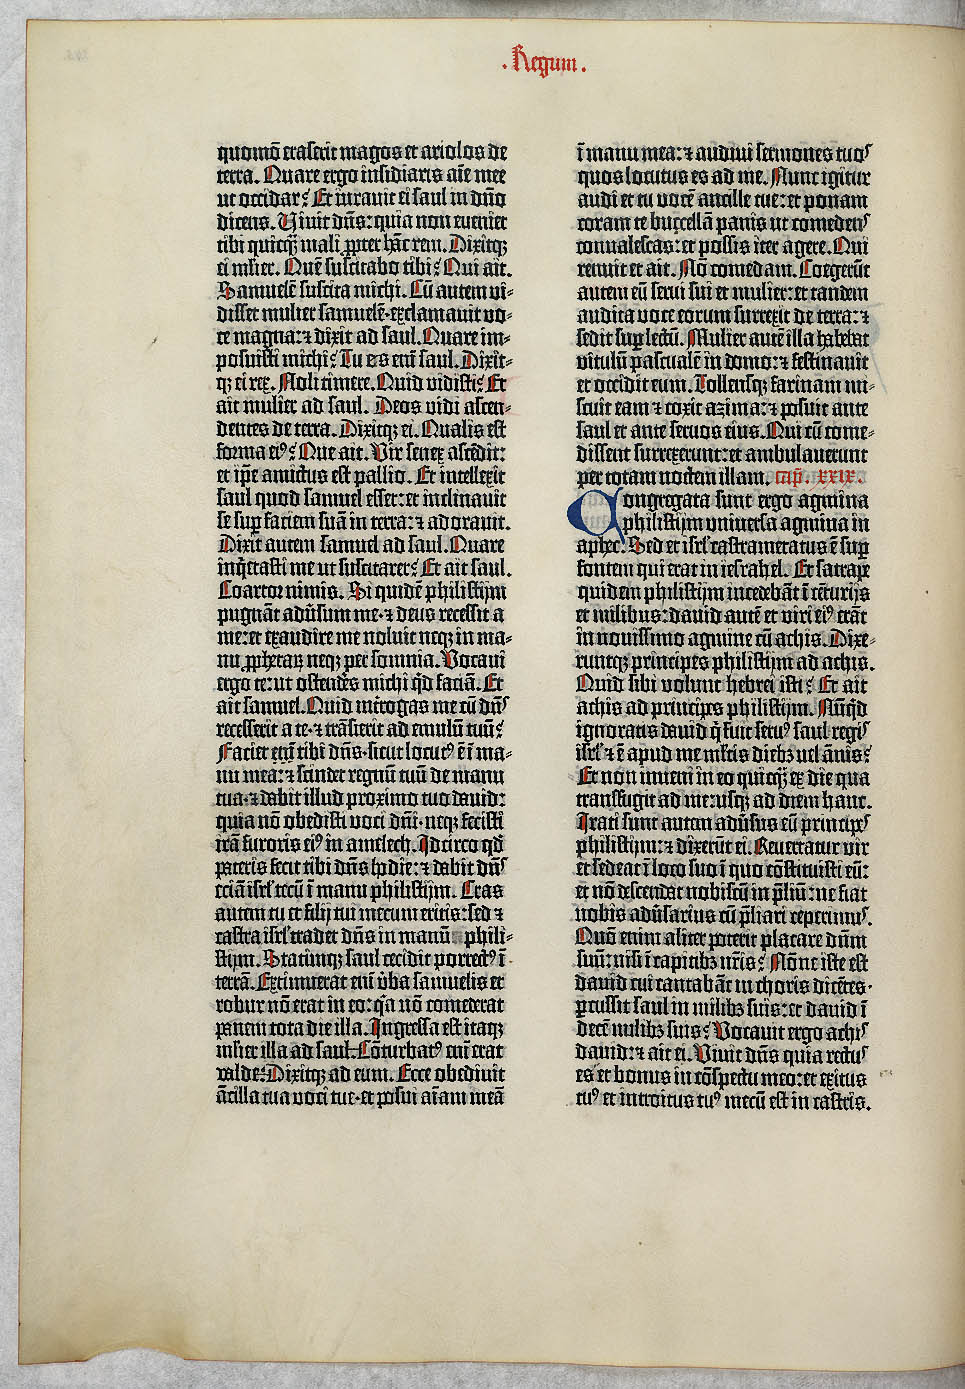 . Regum .
quomō eraserit magos et ariolos de
terra. Quare ergo insidiaris aīe mee
ut occidar? Et iuravit ei saul in dn̄o
dicens. Vivit dn̄s: quia non eveniet
tibi quicq̄ mali ꝓpter hāc rem. Dixitq;
ei ml̄ier. Quē suscitabo tibi? Qui ait.
Samuelē suscita michi. Cū autem vi-
disset mulier samuelē·exclamavit vo-
ce magna: ⁊ dixit ad saul. Quare im-
posuisti michi? Tu es eni saul. Dixit-
q; ei rex. Noli timere. Quid vidisti? Et
ait mulier ad saul. Deos vidi ascen-
dentes de terra. Dixitq; ei. Qualis est
forma eiꝰ? Que ait. Vir senex ascēdit:
et ip̄e amictus est pallio. Et intellexit
saul quod samuel esset: et inclinavit
se suꝑ faciem suā in terra: ⁊ adoravit.
Dixit autem samuel ad saul. Quare
inq̇etasti me ut suscitarer? Et ait saul.
Coartor nimis. Si quidē philistijm
pugnāt adūsum me·⁊ deus recessit a
me: et exaudire me noluit neq; in ma-
nu ꝓphetaꝝ neq; per somnia. Vocavi
ergo te: ut ostenderes michi q̇d faciā. Et
ait samuel. Quid int̄rogas me cū dn̄s
recesserit a te·⁊ trāsierit ad emulū tuū?
Faciet eni tibi dn̄s·sicut locutꝰ ē ī ma-
nu mea: ⁊ scindet regnū tuū de manu
tua·⁊ dabit illud proximo tuo david:
quia nō obedisti voci dn̄i·neq; fecisti
irā furoris eiꝰ in amelech. Idcirco qd̄
pateris fecit tibi dn̄s hodie: ⁊ dabit dn̄s
eciā isrl̄ tecū ī manu philistijm. Cras
autem tu et filij tui mecum eritis: sed ⁊
castra isrl̄ tradet dn̄s in manū phili-
stijm. Statimq; saul cecidit porrectꝰ ī
terrā. Extimuerat eni v̄ba samuelis et
robur nō erat in eo: q̄a nō comederat
panem tota die illa. Ingressa est itaq;
ml̄ier illa ad saul. Cōturbatꝰ eni erat
valde. Dixitq; ad eum. Ecce obedivit
ācilla tua voci tue·et posui aīam meā
ī manu mea: ⁊ audivi sermones tuoꝰ
quos locutus es ad me. Nunc igitur
audi et tu vocē ancille tue: et ponam
coram te buccellā panis ut comedenꝰ
convalescas: et possis iter agere. Qui
renuit et ait. Nō comedam. Coegerūt
autem eū servi sui et mulier: et tandem
audita voce eorum surrexit de terra: ⁊
sedit suꝑ lectū. Mulier autē illa habebat
vitulū pascualē in domo: ⁊ festinavit
et occidit eum. Tollensq; farinam mi-
scuit eam ⁊ coxit azima: ⁊ posuit ante
saul et ante servos eius. Qui cū come-
dissent surrexerunt: et ambulaverunt
per totam noctem illam. cap̄. xxix.
Congregata sunt ergo agmina
philistijm universa agmina in
aphec. Sed et isrl̄ castrametatus ē suꝑ
fontem qui erat in iesrahel. Et satrape
quidem philistijm incedebāt ī cēturijs
et milibus: david autē et viri eiꝰ erāt
in novissimo agmine cū achis. Dixe-
runtq; principes philistijm ad achis.
Quid sibi volunt hebrei isti? Et ait
achis ad principes philistijm. Nūq̇d
ignoratis david q̇ fuit servꝰ saul regꝭ
isrl̄ ⁊ ē apud me ml̄tis diebꝫ vel ānis?
Et non inveni in eo quicq̄ ex die qua
transfugit ad me: usq; ad diem hanc.
Irati sunt autem adūsus eū principꝭ
philistijm: ⁊ dixerūt ei. Revertatur vir
et sedeat ī loco suo ī quo cōstituisti eū:
et nō descendat nobiscū in p̄liū: ne fiat
nobis adūsarius cū p̄liari ceperimꝰ.
Quō enim aliter poterit placare dn̄m
suū: nisi ī capitibꝫ nr̄is? Nōne iste est
david cui cantabāt in choris dicētes·
ꝑcussit saul in milibꝫ suis: et david ī
decē milibꝫ suis? Vocavit ergo achiꝰ
david: ⁊ ait ei. Vivit dn̄s quia rectuꝰ
es et bonus in cōspectu meo: et exitus
tuꝰ et introitus tuꝰ mecū est in castris.